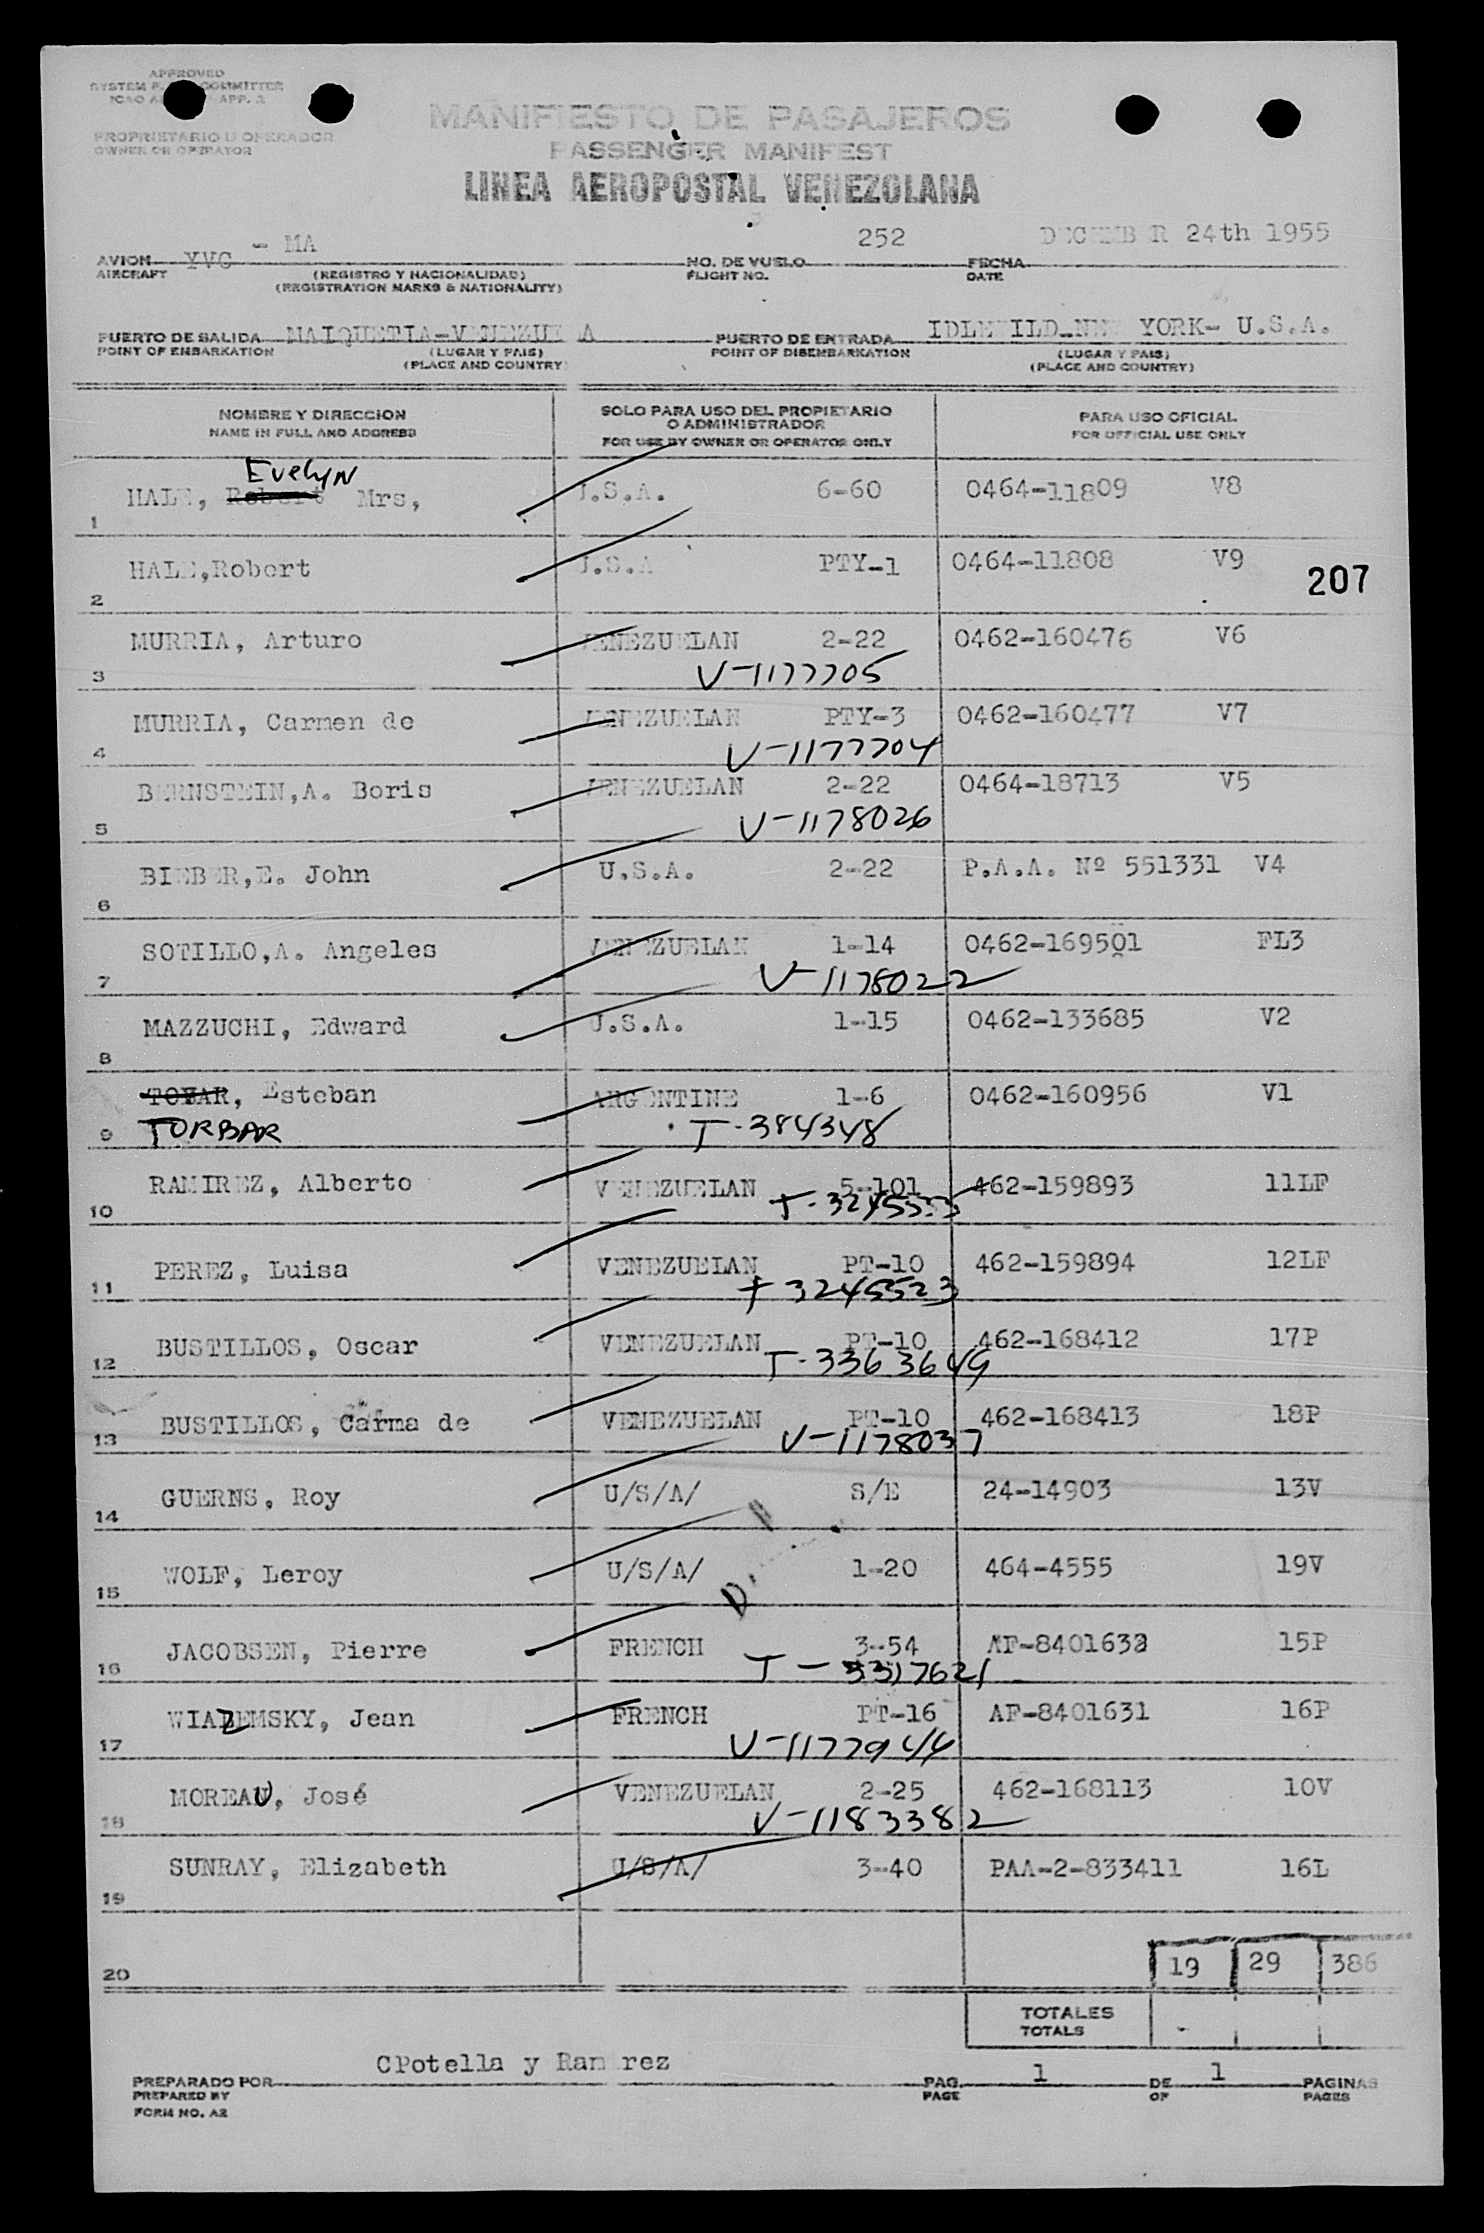 APPROVED
MANIFIESTO DE PASAJEROS
PROPRIETARIO U OPERADOR
OWNER OR OPERATOR
PASSENGER MANIFEST
LINEA AEROPOSTAL VENEZOLANA
AVION YVC - MA NO. DE VUELO 252 FECHA DECEMBER 24th 1955
AIRCRAFT (REGISTRO Y NACIONALIDAD) FLIGHT NO. DATE
(REGISTRATION MARKS & NATIONALITY)
PUERTO DE SALIDA MAIQUETIA-VENEZUELA PUERTO DE ENTRADA IDLEWILD-NEW YORK- U.S.A.
POINT OF EMBARKATION (LUGAR Y PAIS) POINT OF DISEMBARKATION (LUGAR Y PAIS)
(PLACE AND COUNTRY) (PLACE AND COUNTRY)
NOMBRE Y DIRECCION SOLO PARA USO DEL PROPIETARIO O ADMINISTRADOR PARA USO OFICIAL
NAME IN FULL AND ADDRESS FOR USE BY OWNER OR OPERATOR ONLY FOR OFFICIAL USE ONLY
Evelyn
1 HALE, Robert Mrs, U.S.A. 6-60 0464-11809 V8
2 HALE,Robert U.S.A PTY-1 0464-11808 V9
207
3 MURRIA, Arturo VENEZUELAN 2-22 0462-160476 V6
V-1177705
4 MURRIA, Carmen de VENEZUELAN PTY-3 0462-160477 V7
V-1177704
5 BERNSTEIN,A. Boris VENEZUELAN 2-22 0464-18713 V5
V-1178026
6 BIEBER,E. John U.S.A. 2-22 P.A.A. Nº 551331 V4
7 SOTILLO,A. Angeles VENEZUELAN 1-14 0462-169501 FL3
V-1178022
8 MAZZUCHI, Edward U.S.A. 1-15 0462-133685 V2
9 TOVAR, Esteban ARGENTINE 1-6 0462-160956 V1
TORBAR T-384348
10 RAMIREZ, Alberto VENEZUELAN 5-101 462-159893 11LF
11 PEREZ, Luisa VENEZUELAN PT-10 462-159894 12LF
T 3245523
12 BUSTILLOS, Oscar VENEZUELAN PT-10 462-168412 17P
T-3363649
13 BUSTILLOS, Carma de VENEZUELAN PT-10 462-168413 18P
V-1178037
14 GUERNS, Roy U/S/A/ S/E 24-14903 13V
15 WOLF, Leroy U/S/A/ 1-20 464-4555 19V
16 JACOBSEN, Pierre FRENCH 3-54 AF-8401632 15P
T-3317621
17 WIAZEMSKY, Jean FRENCH PT-16 AF-8401631 16P
V-1177944
18 MOREAU, José VENEZUELAN 2-25 462-168113 10V
V-1183382
19 SUNRAY, Elizabeth U/S/A/ 3-40 PAA-2-833411 16L
20 19 29 386
TOTALES
TOTALS
PREPARADO POR CPotella y Ramirez PAG. 1 DE 1 PAGINAS
PREPARED BY PAGE OF PAGES
FORM NO. A2